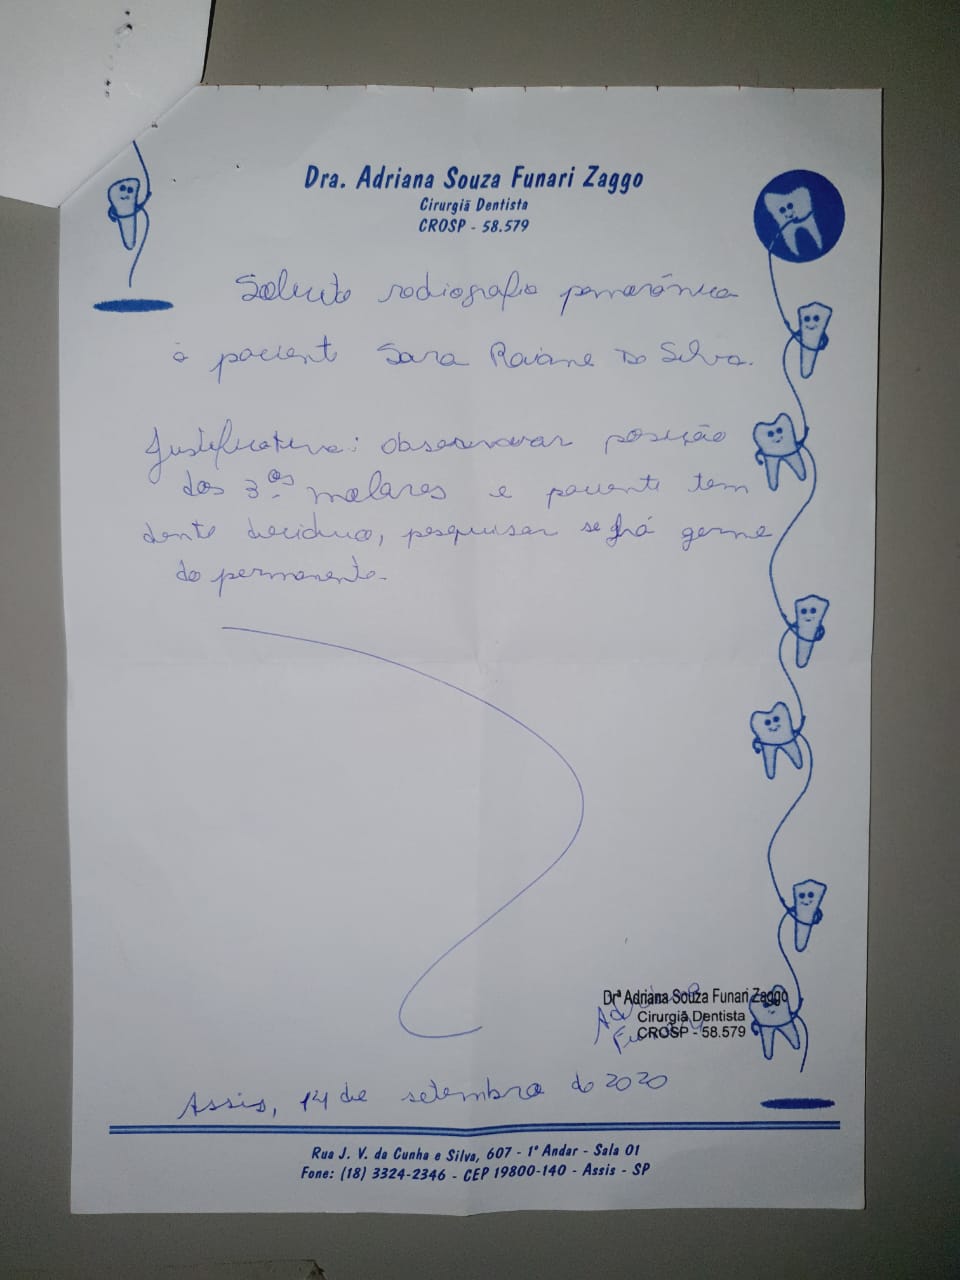 Dra. Adriana Souza Funari Zaggo
Cirurgiã Dentista
CROSP - 58.579
Solicito radiografia panorâmica
à paciente Sara Raiane Da Silva.
Justificativa: observar posição
dos 3.ºs molares e paciente tem
dente deciduo, pesquisar se há germe
do permanente.
Drª Adriana Souza Funari Zaggo
Cirurgiã Dentista
CROSP - 58.579
Assis, 14 de setembro de 2020
Rua J. V. da Cunha e Silva, 607 - 1º Andar - Sala 01
Fone: (18) 3324-2346 - CEP 19800-140 - Assis - SP